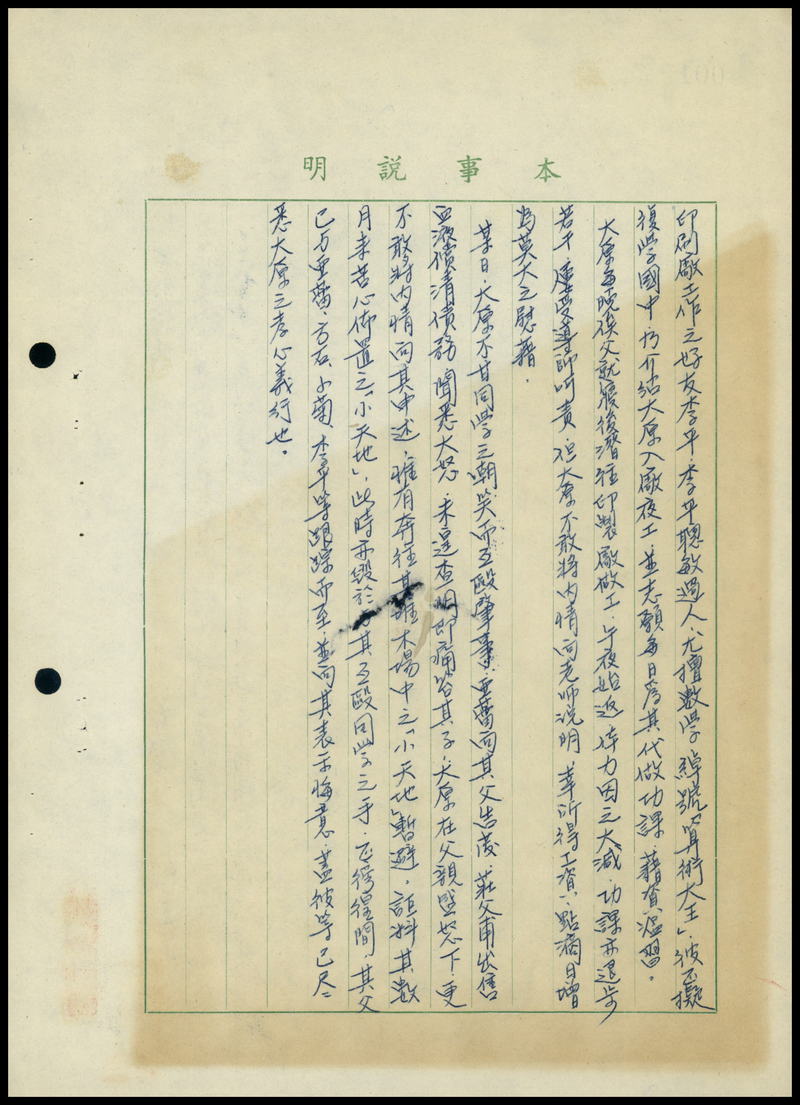 本事說明
印刷廠工作之好友李平，李平聰敏過人，尤擅數學，綽號「算術大王」，彼正擬
復學國中，乃介紹大原入廠夜工，並志願每日為其代做功課，藉資溫習。
大原每晚俟父就寢後潛往印製廠做工，午夜始返，体力因之大減，功課亦退步
若干，屢受導師叫責，但大原不敢將內情向老师說明，幸所得工資，點滴日增
為莫大之慰藉。
某日，大原不甘同學之嘲笑而互毆肇事，亞蕾向其父告發，莊父甫出售
血液償清債務，聞悉大怒，未遑查明即痛笞其子，大原在父親盛怒下，更
不敢將內情向其申述，惟有奔往其堆木場中之「小天地」暫避，詎料其數
月來苦心佈置之「小天地」，此時亦毀於與其互毆同學之手，正徬徨間，其父
已與亞蕾、方石、小菊、李平等跟踪而至，並向其表示悔意，蓋彼等已尽
悉大原之孝心義行也。